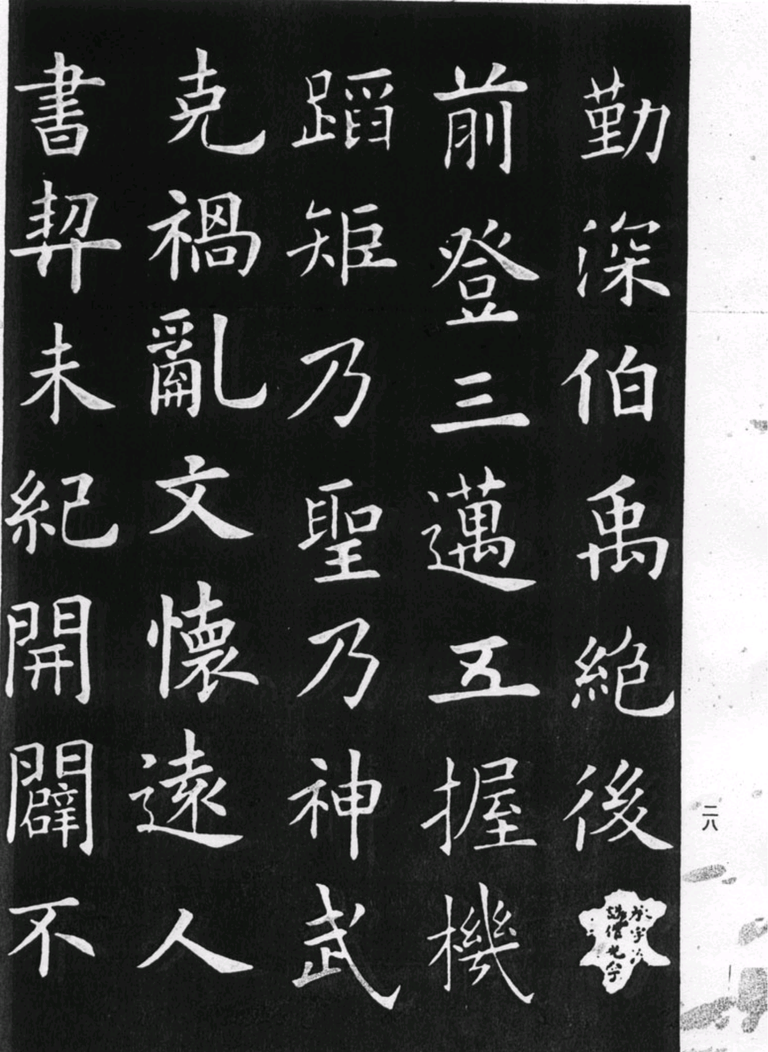 勤深伯禹絶後
前登三邁五握機
蹈矩乃聖乃神武
克禍亂文懷遠人
書契未紀開闢不
二八